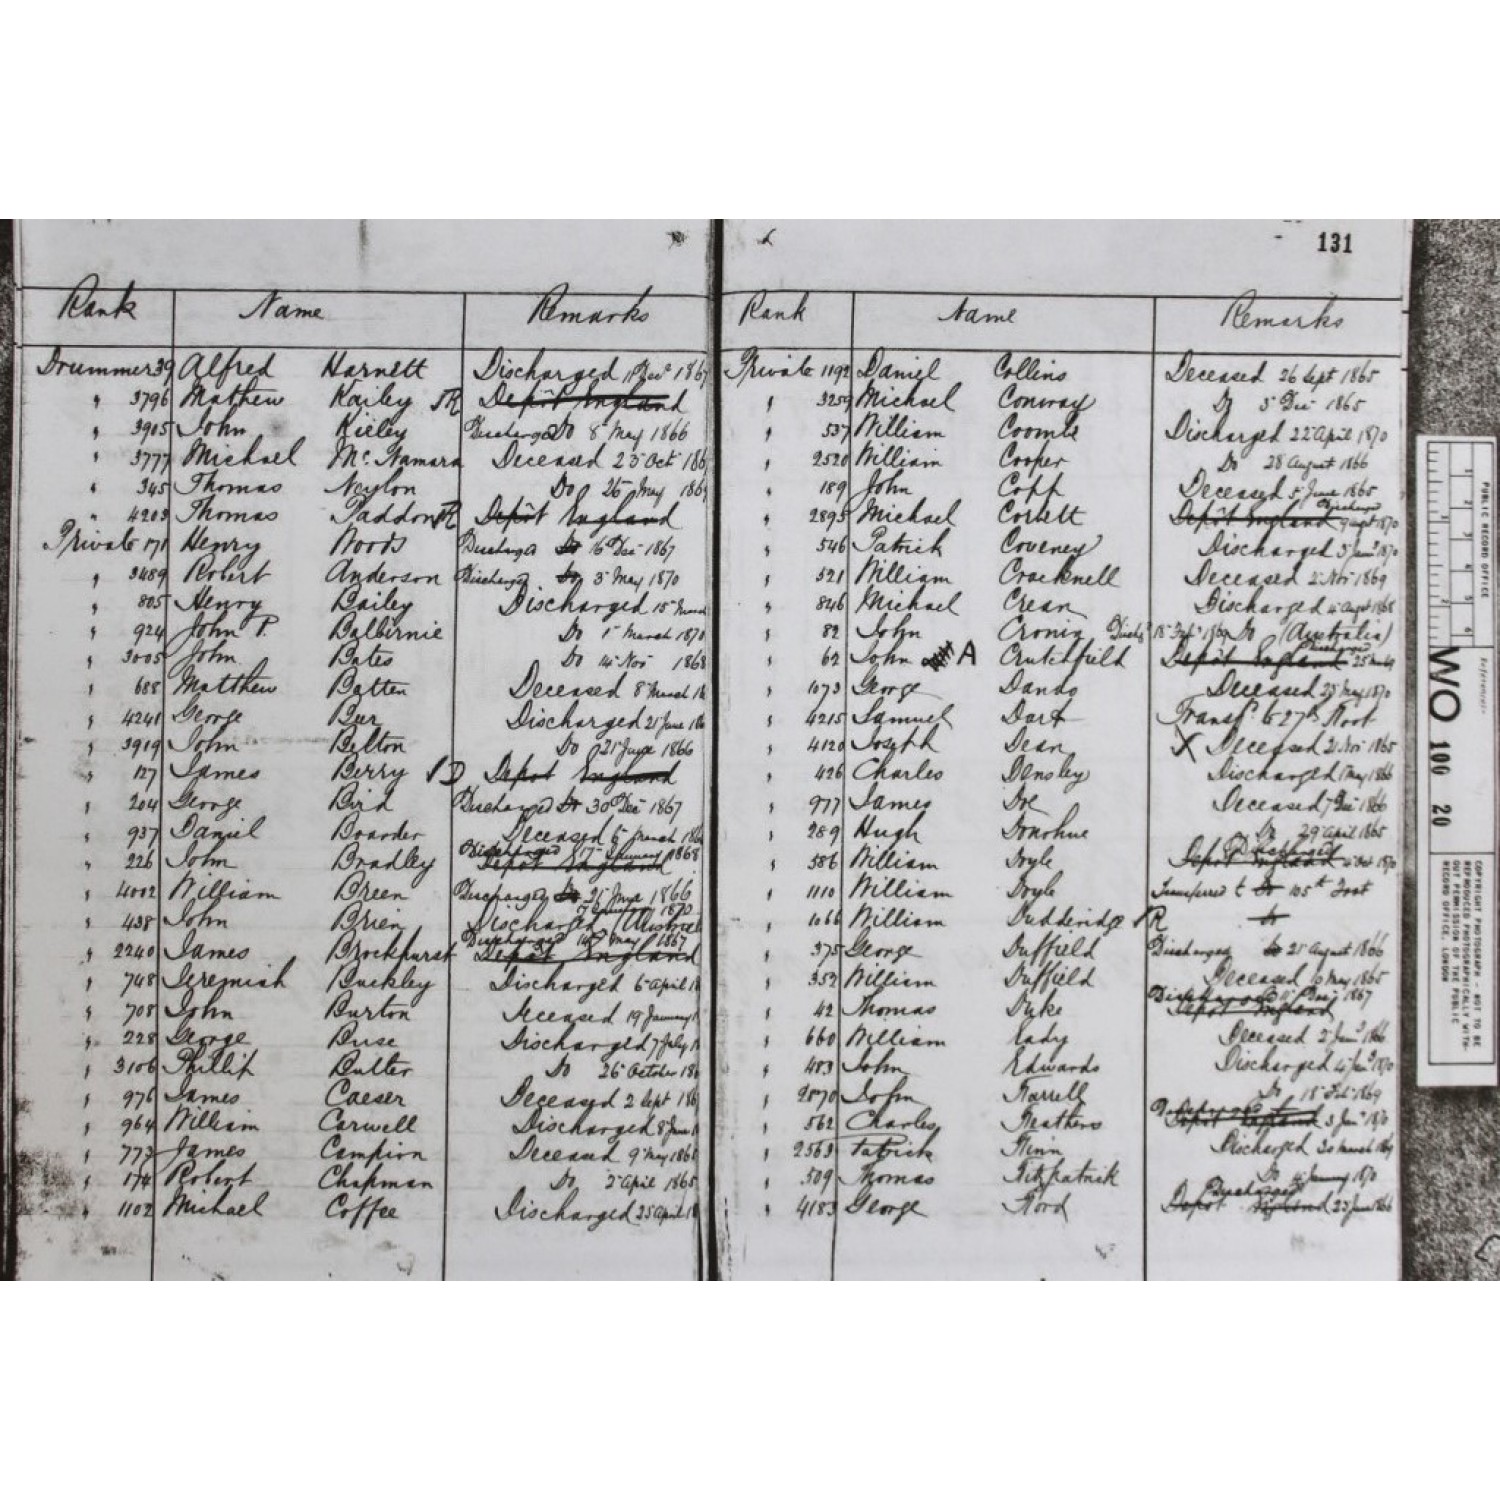 131
Rank Name Remarks
Drummer 39 Alfred Harnett Discharged 1867
" 3796 Mathew Kailey Depôt England
" 3905 John Kieley Discharged Do 8 May 1866
" 3777 Michael Mc Namara Deceased 23 Oct 186
" 345 Thomas Neylon Do 26 May 186
" 4203 Thomas Paddon Depôt England
Private 171 Henry Woods Discharged Do 16 Dec 1867
" 3489 Robert Anderson Discharged Do 3 May 1870
" 805 Henry Bailey Discharged 15
" 924 John P. Balbirnie Do 1 March 1870
" 3005 John Bates Do 14 Nov 1868
" 688 Matthew Batten Deceased 8 March
" 4241 George Discharged 21 June
" 3919 John Belton Do 21 June 1866
" 127 James Berry Depot England
" 204 George Bird Discharged Do 30 Dec 1867
" 937 Daniel Boarder Deceased 6 March
" 226 John Bradley Discharged January 1868 Depôt England
" 4002 William Breen Discharged Do 21 June 1866
" 438 John Brien Discharged 1870
" 2240 James Brockhurst Discharged May 1867 Depôt England
" 748 Jeremiah Buckley Discharged 6 April
" 708 John Burton Deceased 19 January
" 228 George Buse Discharged 7 July
" 3106 Phillip Butter Do 26 October
" 976 James Caeser Deceased 2 Sept 186
" 964 William Carwell Discharged 8 June
" 773 James Campion Deceased 9 May 186
" 174 Robert Chapman Do 2 April 1865
" 1102 Michael Coffee Discharged 25 April
Rank Name Remarks
Private 1192 Daniel Collins Deceased 26 Sept 1865
" 3259 Michael Conway Do 5 Dec 1865
" 537 William Coombe Discharged 22 April 1870
" 2520 William Cooper Do 28 August 1866
" 189 John Copp Deceased 5 June 1865
" 2893 Michael Corbett Depôt England Discharged 1870
" 546 Patrick Coveney Discharged 3 1870
" 521 William Cracknell Deceased 2 Nov 1869
" 846 Michael Crean Discharged 4 1868
" 82 John Cronin Do (Australia)
" 62 John A Crutchfield Depôt England
" 1073 George Dando Deceased 25 May 1870
" 4215 Samuel Dart Transfd to 27th Foot
" 4120 Joseph Dean X Deceased 21 Nov 1865
" 426 Charles Densley Discharged 1 May 1866
" 977 James Doe Deceased 7 Dec 1866
" 289 Hugh Donohue Do 29 April 1865
" 586 William Doyle Discharged Depôt England 1870
" 1110 William Doyle Transferred to Do 105th Foot
" 1066 William Dudderidge Do
" 375 George Duffield Discharged Do 21 August 1866
" 352 William Duffield Deceased May 1865
" 42 Thomas Dyke Discharged 1867 Depôt England
" 660 William Eady Deceased 2 1866
" 483 John Edwards Discharged 4 1870
" 2870 John Farrell Do 18 Feb 1869
" 562 Charles Feathers Depôt England 3 1870
" 2563 Patrick Finn Discharged 20 March 1869
" 509 Thomas Fitzpatrick Do January 1870
" 4183 George Ford Discharged Depôt England 23 June 1866
PUBLIC RECORD OFFICE
Reference:-
WO 100 20
COPYRIGHT PHOTOGRAPH - NOT TO BE
REPRODUCED PHOTOGRAPHICALLY WITH-
OUT PERMISSION OF THE PUBLIC
RECORD OFFICE, LONDON